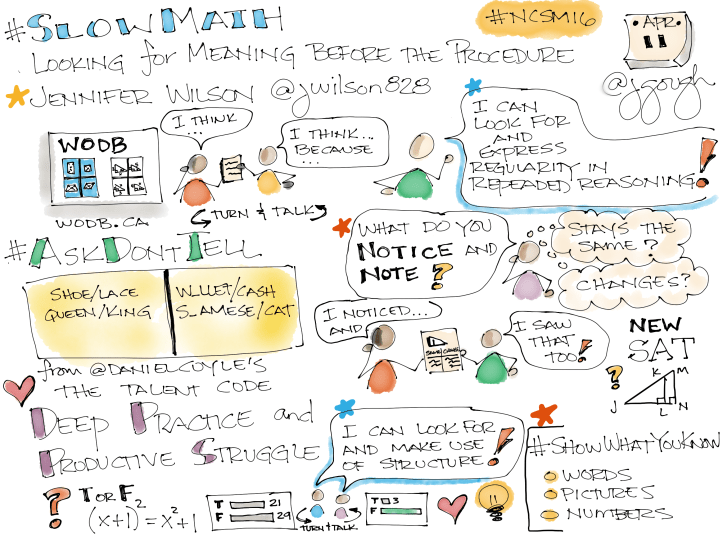 #SLOWMATH
LOOKING for MEANING BEFORE THE PROCEDURE
#NCSM16
APR.
11
@jgough
JENNIFER WILSON @jwilson828
WODB
WODB.CA
I THINK
...
I THINK...
BECAUSE
...
TURN & TALK
I CAN
LOOK FOR
AND
EXPRESS
REGULARITY IN
REPEADED REASONING!
#ASKDONTTELL
SHOE/LACE
QUEEN/KING
W_LLET/CASH
S_AMESE/CAT
from @DANIELCOYLE'S
THE TALENT CODE
WHAT DO YOU
NOTICE AND
NOTE ?
STAYS THE
SAME?
CHANGES?
I NOTICED...
AND
SAME/CHANGE
I SAW
THAT
TOO!
NEW
SAT
?
K M
J L N
DEEP PRACTICE and
PRODUCTIVE STRUGGLE
I CAN LOOK FOR
AND MAKE USE
OF STRUCTURE!
#SHOWWHATYOUKNOW
WORDS
PICTURES
NUMBERS
? T OR F
(x+1)² = x²+1
T 21
F 29
TURN & TALK
T 3
F
11